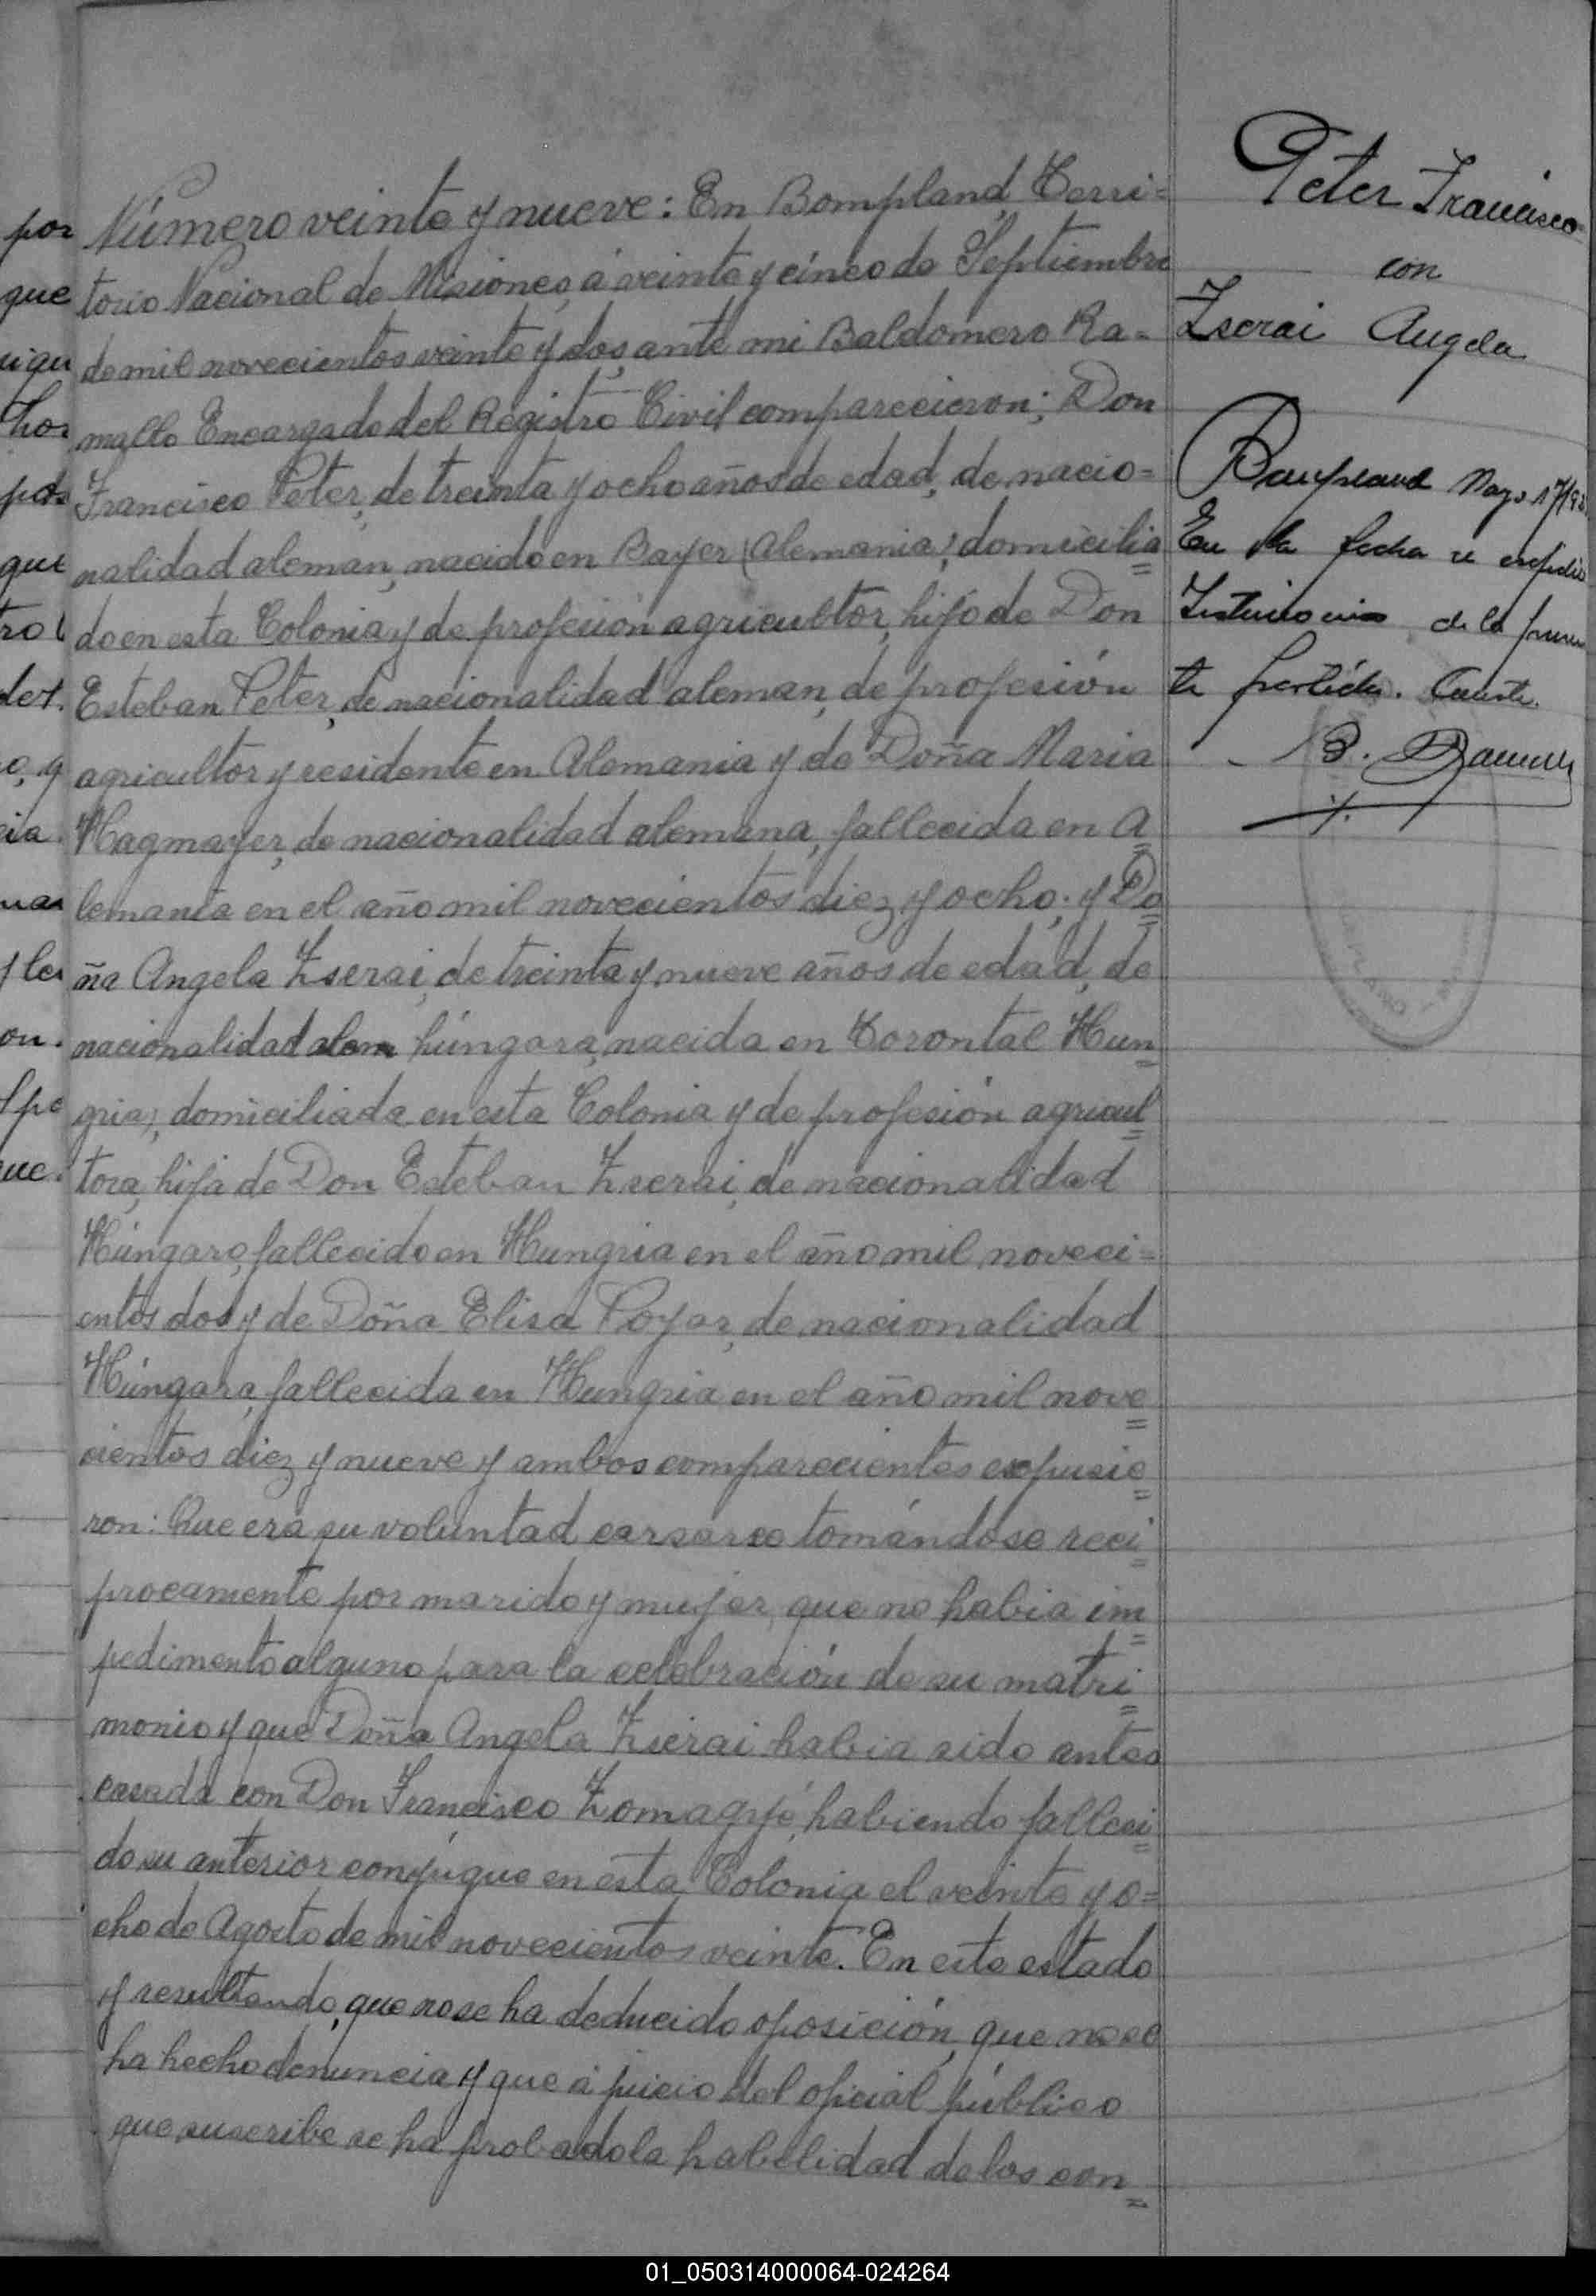 Número veinte y nueve: En Bompland, Terri=
torio Nacional de Misiones, á veinte y cinco de Septiembre
de mil novecientos veinte y dos, ante mi Baldomero Ra=
mallo Encargado del Registro Civil comparecieron; Don
Francisco Peter, de treinta y ocho años de edad, de nacio=
nalidad aleman, nacido en Bayer (Alemania) domicilia
do en esta Colonia y de profesión agricultor, hijo de Don
Esteban Peter, de nacionalidad aleman, de profesión
agricultor y residente en Alemania y de Doña Maria
Hagmayer, de nacionalidad alemana, fallecida en A
lemania en el año mil novecientos diez y ocho; y Do
ña Angela Zserai, de treinta y nueve años de edad, de
nacionalidad alem húngara, nacida en Torontal Hun
gria), domiciliada en esta Colonia y de profesión agricul
tora, hija de Don Esteban Zserai, de nacionalidad
Húngaro, fallecido en Hungria en el año mil noveci=
entos dos y de Doña Elisa Poyar, de nacionalidad
Húngara, fallecida en Hungria en el año mil nove
cientos diez y nueve y ambos comparecientes expusie
ron: Que era su voluntad carsarse tomándose reci
procamente por marido y mujer, que no habia im
pedimento alguno para la celebración de su matri
monio y que Doña Angela Zserai habia sido antes
casada con Don Francisco Zomagyé, habiendo falleci
do su anterior conyúgue en esta Colonia el veinte y o=
cho de Agosto de mil novecientos veinte. En este estado
y resultando, que no se ha deducido oposición, que no se
ha hecho denuncia y que á juicio del oficial público
que suscribe se ha probado la habilidad de los con
Peter Francisco
con
Zserai Angela
Bompland Mayo 17/93
En la fecha se expidió
Testimonio de la presen
te partida. Conste.
B. Ramallo
por
que
hor
pas
que
ue.
01_050314000064-024264